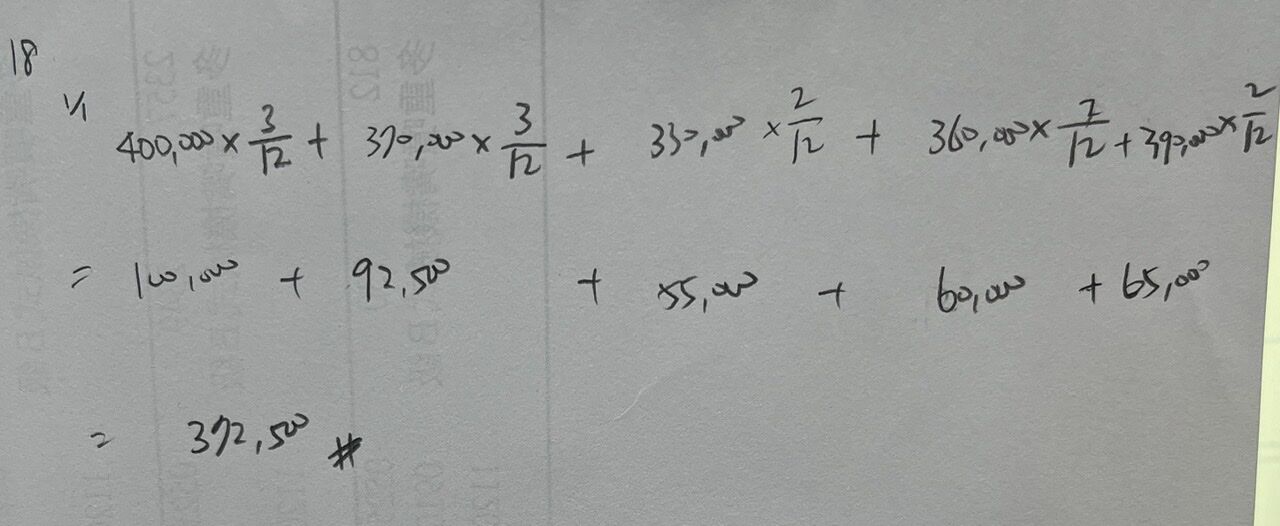 18
1/1 400,000 × 3/12 + 370,000 × 3/12 + 330,000 × 2/12 + 360,000 × 2/12 + 390,000 × 2/12
= 100,000 + 92,500 + 55,000 + 60,000 + 65,000
= 372,500 #